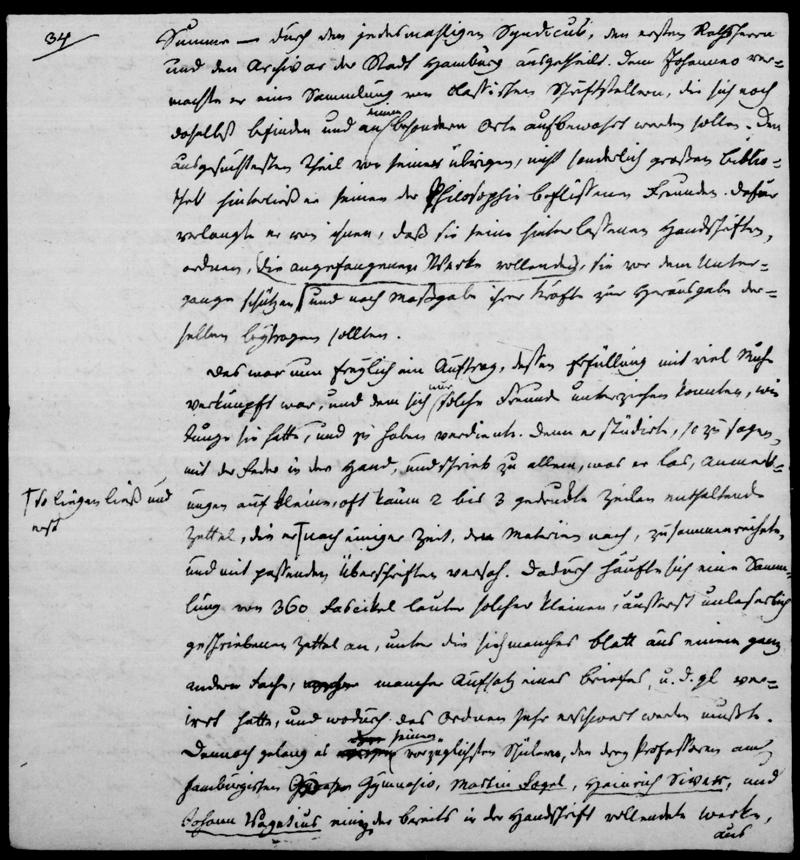 34
Summe — durch den jedesmahligen Syndicus, den ersten Rathsherrn
und den Archivar der Stadt Hamburg ausgetheilt. Dem Johanneo ver-
machte er eine Sammlung von classischen Schriftstellern, die sich noch
daselbst befinden und an einem besondern Orte aufbewahrt werden sollen. Den
ausgesuchtesten Theil von seiner übrigen, nicht sonderlich großen Biblio-
thek hinterließ er seinen der Philosophie beflissenen Freunden. Dafür
verlangte er von ihnen, daß sie seine hinterlassenen Handschriften,
ordnen, die angefangenen Werke vollenden, sie vor dem Unter-
gange schützen und nach Maßgabe ihrer Kräfte zur Herausgabe der-
selben beytragen sollten.
Das war nun freylich ein Auftrag, dessen Erfüllung mit viel Mühe
verknüpft war, und dem sich nur solche Freunde unterziehen konnten, wie
Junge sie hatte, und zu haben verdiente. Denn er studirte, so zu sagen,
mit der Feder in der Hand, und schrieb zu allem, was er las, Anmerk-
ungen auf kleine, oft kaum 2 bis 3 gedruckte Zeilen enthaltende
Zettel, die er nach einiger Zeit, den Materien nach, zusammenreihete,
so liegen ließ und
erst
und mit passenden Überschriften versah. Dadurch häufte sich eine Samm-
lung von 360 Fascikel lauter solcher kleinen, äusserst unleserlich
geschriebenen Zettel an, unter die sich manches Blatt aus einem ganz
andern Fache, mancher Aufsatz eines Briefes, u. d. gl. ver-
irrt hatte, und wodurch das Ordnen sehr erschwert werden mußte.
Dennoch gelang es seinen vorzüglichsten Schülern, den drey Professoren am
Hamburgischen Gymnasio, Martin Fogel, Heinrich Sivers, und
Johann Vagetius einige der bereits in der Handschrift vollendete Werke,
aus